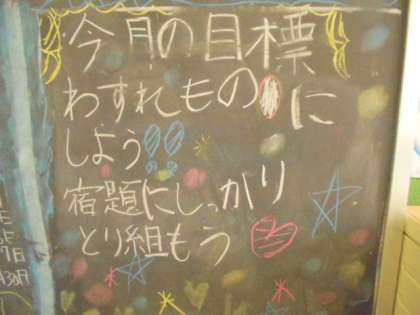 今月の目標
わすれもの0に
しよう!!
宿題にしっかり
とり組もう